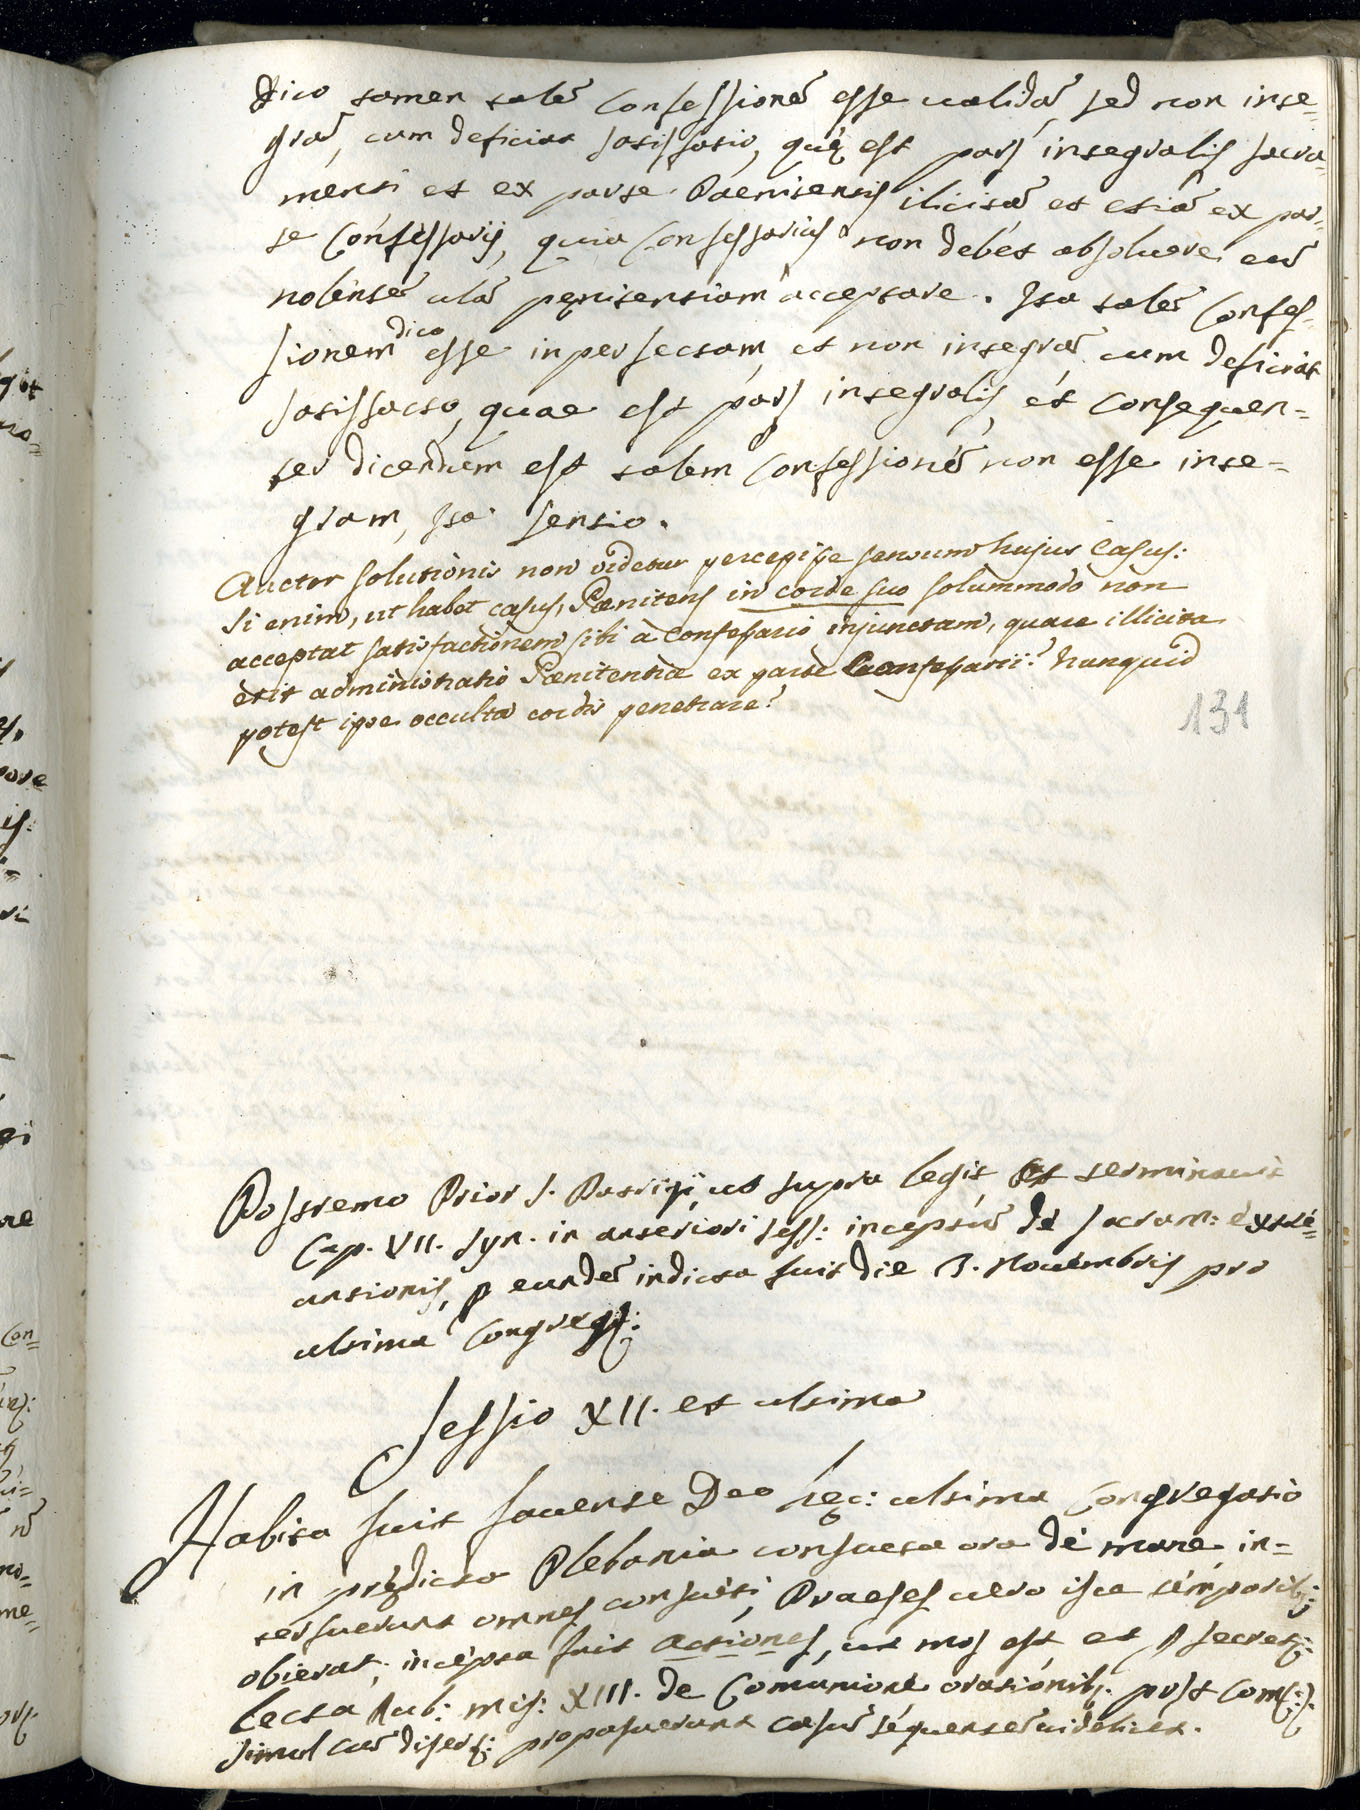 Dico tamen talẽ Confessionẽ esse ualidã, sed non inte=
grã, cum deficiat satisfatio, quę est pars integralis sacra=
menti et ex parte Paenitentis ilicitã et etiã ex par=
te Confessarij, quia Confessarius non debet absoluere eũ
nolentẽ ulã pęnitentiam acceptare. Ita talẽ Confes=
sionem dico esse inperfectam, et non integrã cum deficiat
satisfacto, quae est pars integralis, et Consequen=
ter dicendum est talem Confessionẽ non esse inte=
gram, Ita sentio.
Auctor solutionis non videtur percepisse sensum hujus Casus:
Si enim, ut habet casus, Pœnitens in corde suo solummodo non
acceptat satisfactionem sibi à Confessario injunctam, quare illicita
erit administratio Pœnitentiæ ex parte Confessarii? Nunquid
potest ipse occulta cordis penetrare?
131
Postremo Prior S. Patritij, ut supra legit et terminauit
Cap. VII. Syn. in anteriori Sess: inceptũ de Sacram: extre=
untionis, p eundẽ indicta fuit die 3. Nouembris pro
ultima Congregę:
Sessio XII. et ultima
Habita fuit fauente Deo hęc: ultima Congregatio
in prędicta Plebania consueta ora de mane, in=
terfuerunt omnes consueti, Praeses uero iste temporib:
obierat; incepta fuit actiones, ut mos est, et p secretę:
lecta Rub: mis: XIII. de Comunione orationib: post Com:
simul cũ diserę: proposuerunt casũ sequentẽ uidelicet.